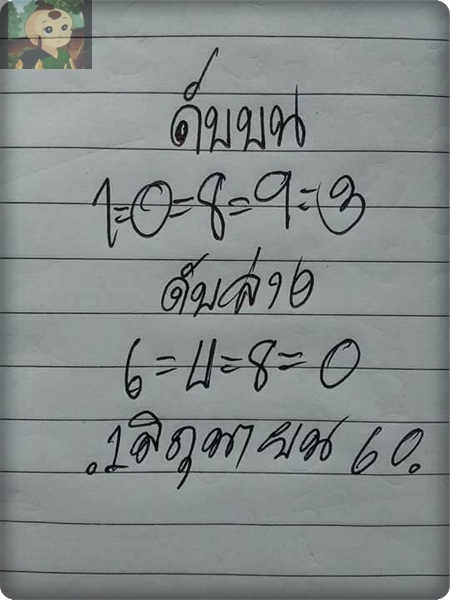 ดับบน
1=0=8=9=3
ดับล่าง
6=4=8=0
.1มิถุนายน 60.